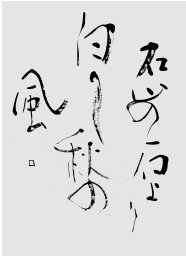 石山の石より
白し秋の
風